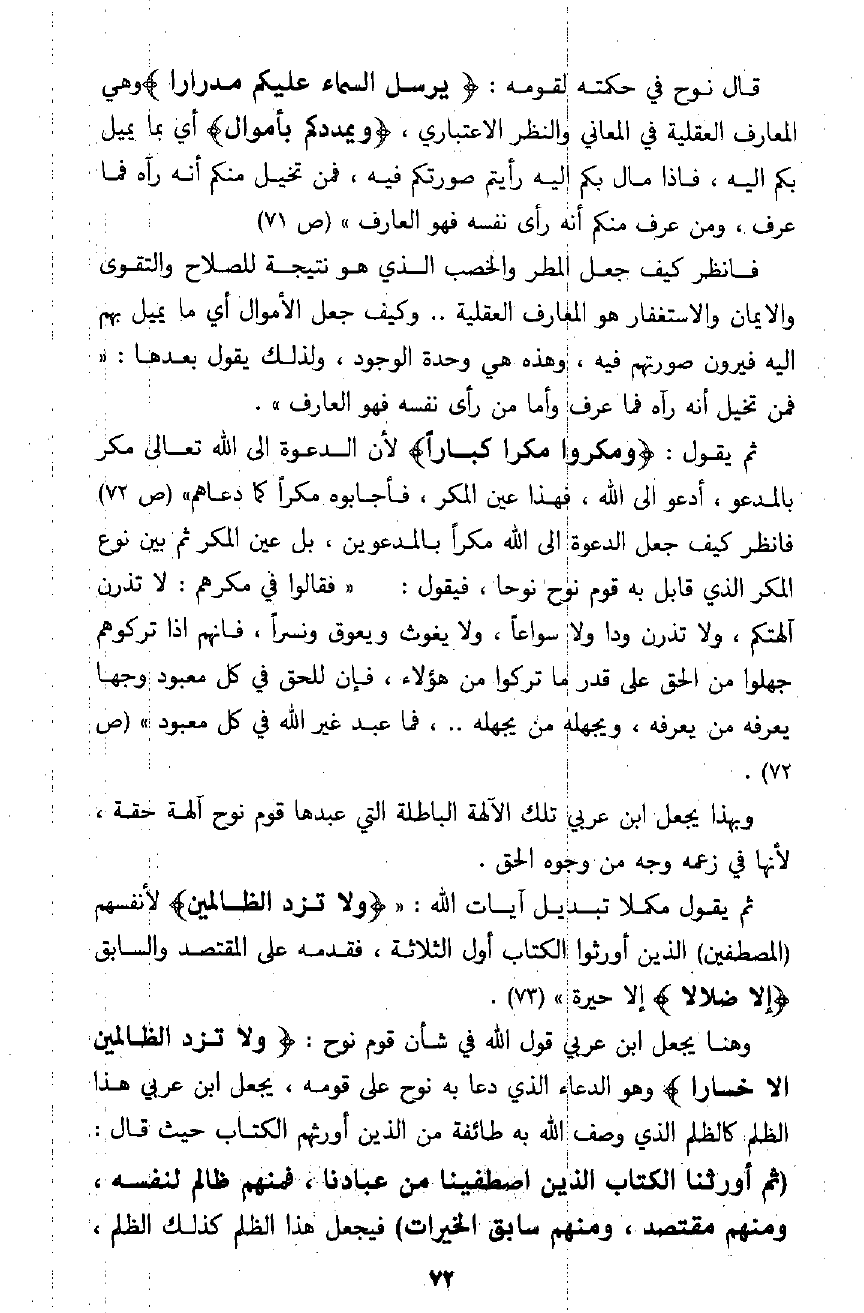 قال نوح في حكته لقومه : ﴿ يرسل السماء عليكم مدرارا ﴾وهي
المعارف العقلية في المعاني والنظر الاعتباري ، ﴿ويمددكم بأموال﴾ أي بما يميل
بكم اليه ، فاذا مال بكم اليه رأيتم صورتكم فيه ، فمن تخيل منكم أنه رآه فما
عرف ، ومن عرف منكم أنه رأى نفسه فهو العارف » (ص ٧١)
فانظر كيف جعل المطر والخصب الذي هو نتيجة للصلاح والتقوى
والايمان والاستغفار هو المعارف العقلية .. وكيف جعل الأموال أي ما يميل بهم
اليه فيرون صورتهم فيه ، وهذه هي وحدة الوجود ، ولذلك يقول بعدها : «
فمن تخيل أنه رآه فما عرف وأما من رأى نفسه فهو العارف » .
ثم يقول : ﴿ومكروا مكرا كباراً﴾ لأن الدعوة الى الله تعالى مكر
بالمدعو ، أدعو الى الله ، فهذا عين المكر ، فأجابوه مكراً كما دعاهم» (ص ٧٢)
فانظر كيف جعل الدعوة الى الله مكراً بالمدعوين ، بل عين المكر ثم بين نوع
المكر الذي قابل به قوم نوح نوحا ، فيقول : « فقالوا في مكرهم : لا تذرن
آلهتكم ، ولا تذرن ودا ولا سواعاً ، ولا يغوث ويعوق ونسراً ، فانهم اذا تركوهم
جهلوا من الحق على قدر ما تركوا من هؤلاء ، فإن للحق في كل معبود وجها
يعرفه من يعرفه ، ويجهله من يجهله .. ، فما عبد غير الله في كل معبود » (ص
٧٢) .
وبهذا يجعل ابن عربي تلك الآلهة الباطلة التي عبدها قوم نوح آلهة حقة ،
لأنها في زعمه وجه من وجوه الحق .
ثم يقول مكلا تبديل آيات الله : « ﴿ولا تزد الظالمين﴾ لأنفسهم
(المصطفين) الذين أورثوا الكتاب أول الثلاثة ، فقدمه على المقتصد والسابق
﴿إلا ضلالا ﴾ إلا حيرة » (٧٣) .
وهنا يجعل ابن عربي قول الله في شأن قوم نوح : ﴿ ولا تزد الظالمين
الا خسارا ﴾ وهو الدعاء الذي دعا به نوح على قومه ، يجعل ابن عربي هذا
الظلم كالظلم الذي وصف الله به طائفة من الذين أورثهم الكتاب حيث قال :
(ثم أورثنا الكتاب الذين اصطفينا من عبادنا ، فمنهم ظالم لنفسه ،
ومنهم مقتصد ، ومنهم سابق الخيرات) فيجعل هذا الظلم كذلك الظلم ،
٧٢